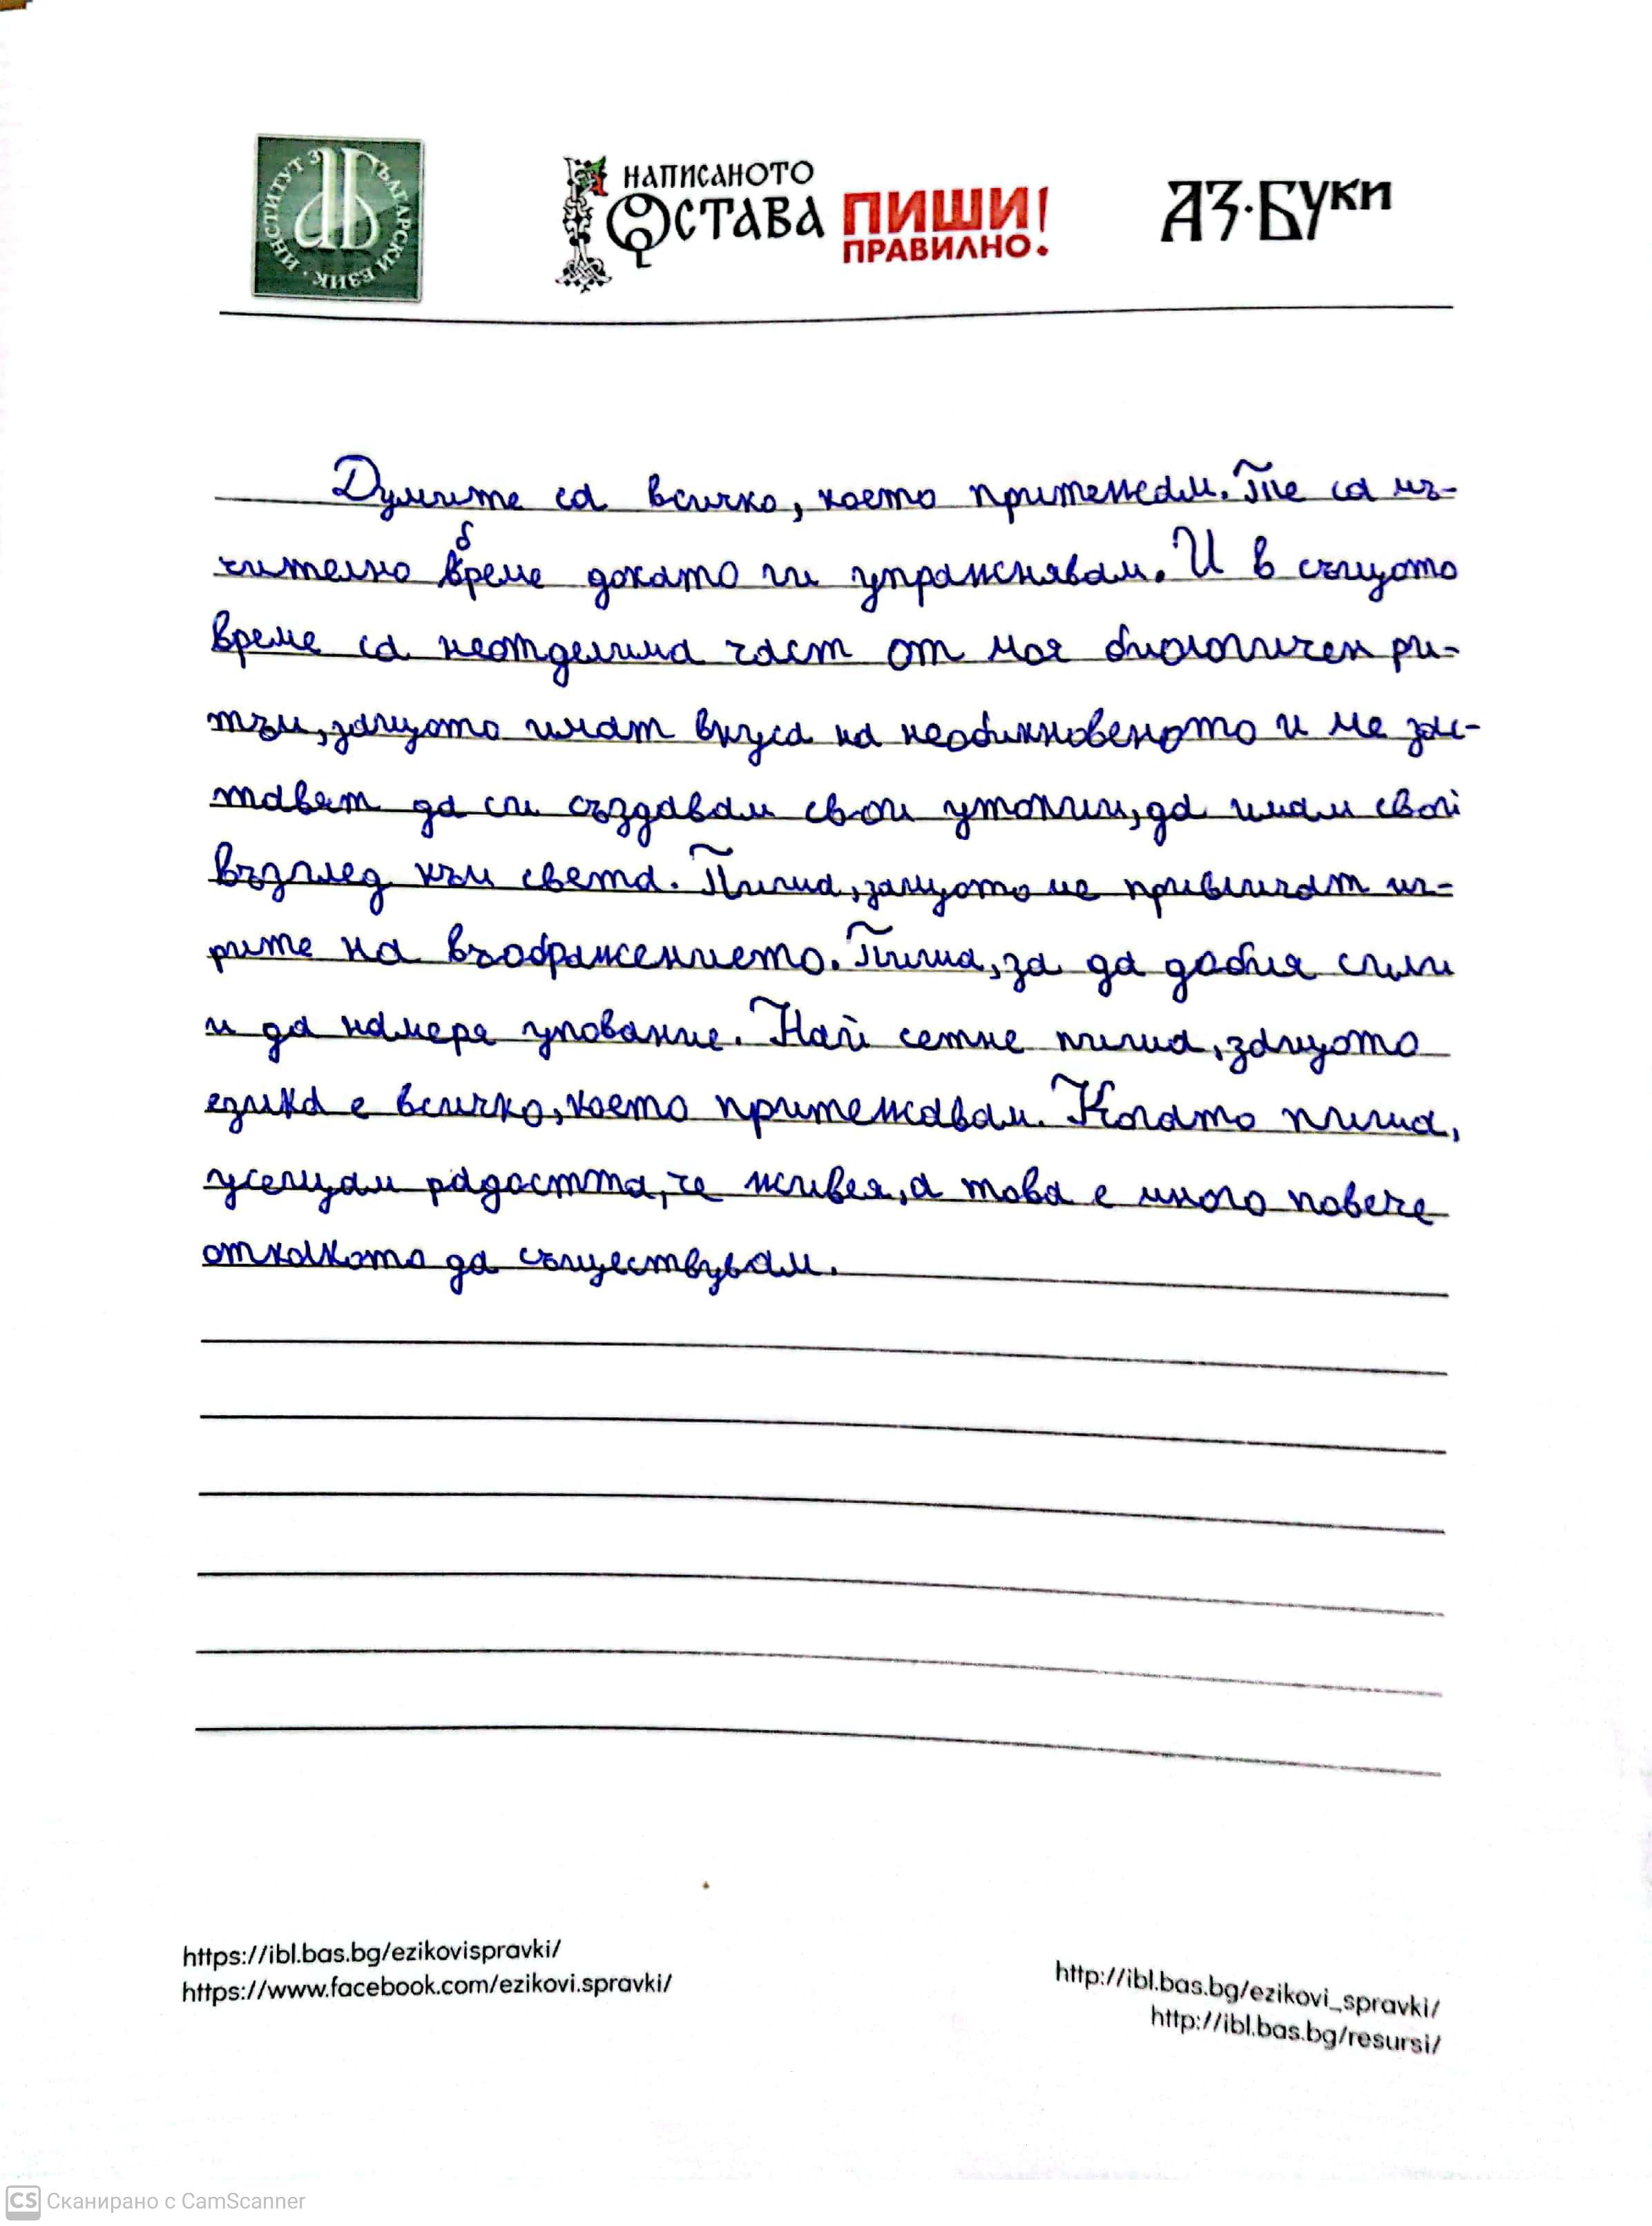 ИНСТИТУТ ЗА БЪЛГАРСКИ ЕЗИК
НАПИСАНОТО
ОСТАВА
ПИШИ!
ПРАВИЛНО.
АЗ·БУКИ
Думите са всичко, което притежам. Те са мъ-
чително бреме докато ги упражнявам. И в същото
време са неотделима част от моя биологичен ри-
тъм, защото имат вкуса на необикновеното и ме зас-
тавят да си създавам свои утопии, да имам свой
възглед към света. Пиша, защото ме привличат иг-
рите на въображението. Пиша, за да добия сили
и да намеря упование. Най сетне пиша, защото
езика е всичко, което притежавам. Когато пиша,
усещам радостта, че живея, а това е много повече
отколкото да съществувам.
https://ibl.bas.bg/ezikovispravki/
https://www.facebook.com/ezikovi.spravki/
http://ibl.bas.bg/ezikovi_spravki/
http://ibl.bas.bg/resursi/
CS Сканирано с CamScanner